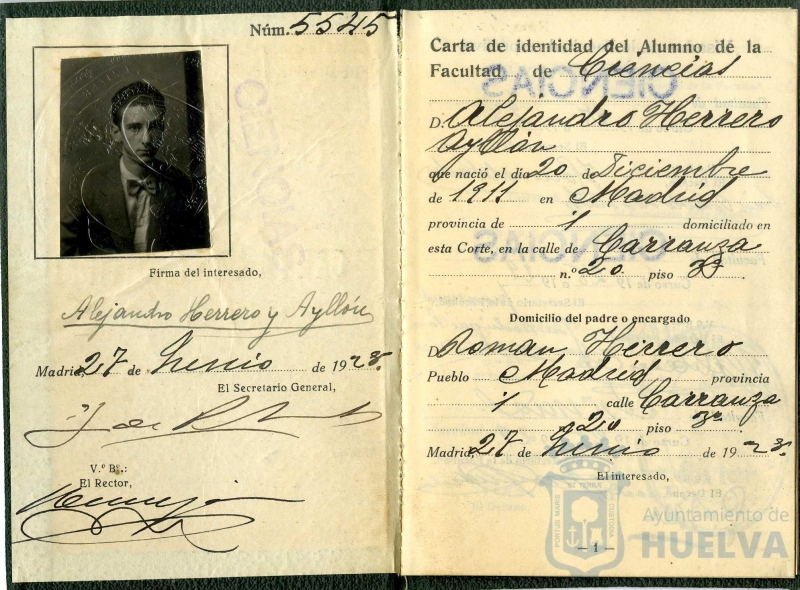 Núm. 5545
Firma del interesado,
Alejandro Herrero y Ayllón
Madrid, 27 de Junio de 1928.
El Secretario General,
V.º B.º:
El Rector,
Carta de identidad del Alumno de la
Facultad de Ciencias
CIENCIAS
D. Alejandro Herrero
Ayllón
que nació el día 20 de Diciembre
de 1911 en Madrid
provincia de domiciliado en
esta Corte, en la calle de Carranza
CIENCIAS
n.º 20 piso 3º
Domicilio del padre o encargado
D. Roman Herrero
Pueblo Madrid provincia
calle Carranza
20 piso 3º
Madrid, 27 de Junio de 1928.
El interesado,
PORTUS MARIS ET TERRAE CUSTODIA
Ayuntamiento de
HUELVA
– 1 –